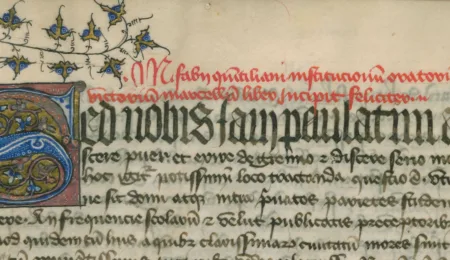 M. fabij quintiliani institucionum oratori
victorium marcellum liber incipit feliciter
Sed nobis iam paulatim a
scere puer et exire de gremio et discere serio in
hoc igitur potissimum loco tractanda questio est ut
ne sit domi atque intra privatos parietes studen
An frequencie scolarum et velut publicatis preceptorib
quod quidem cum hiis a quibus clarissimarum civitatum mores sunt